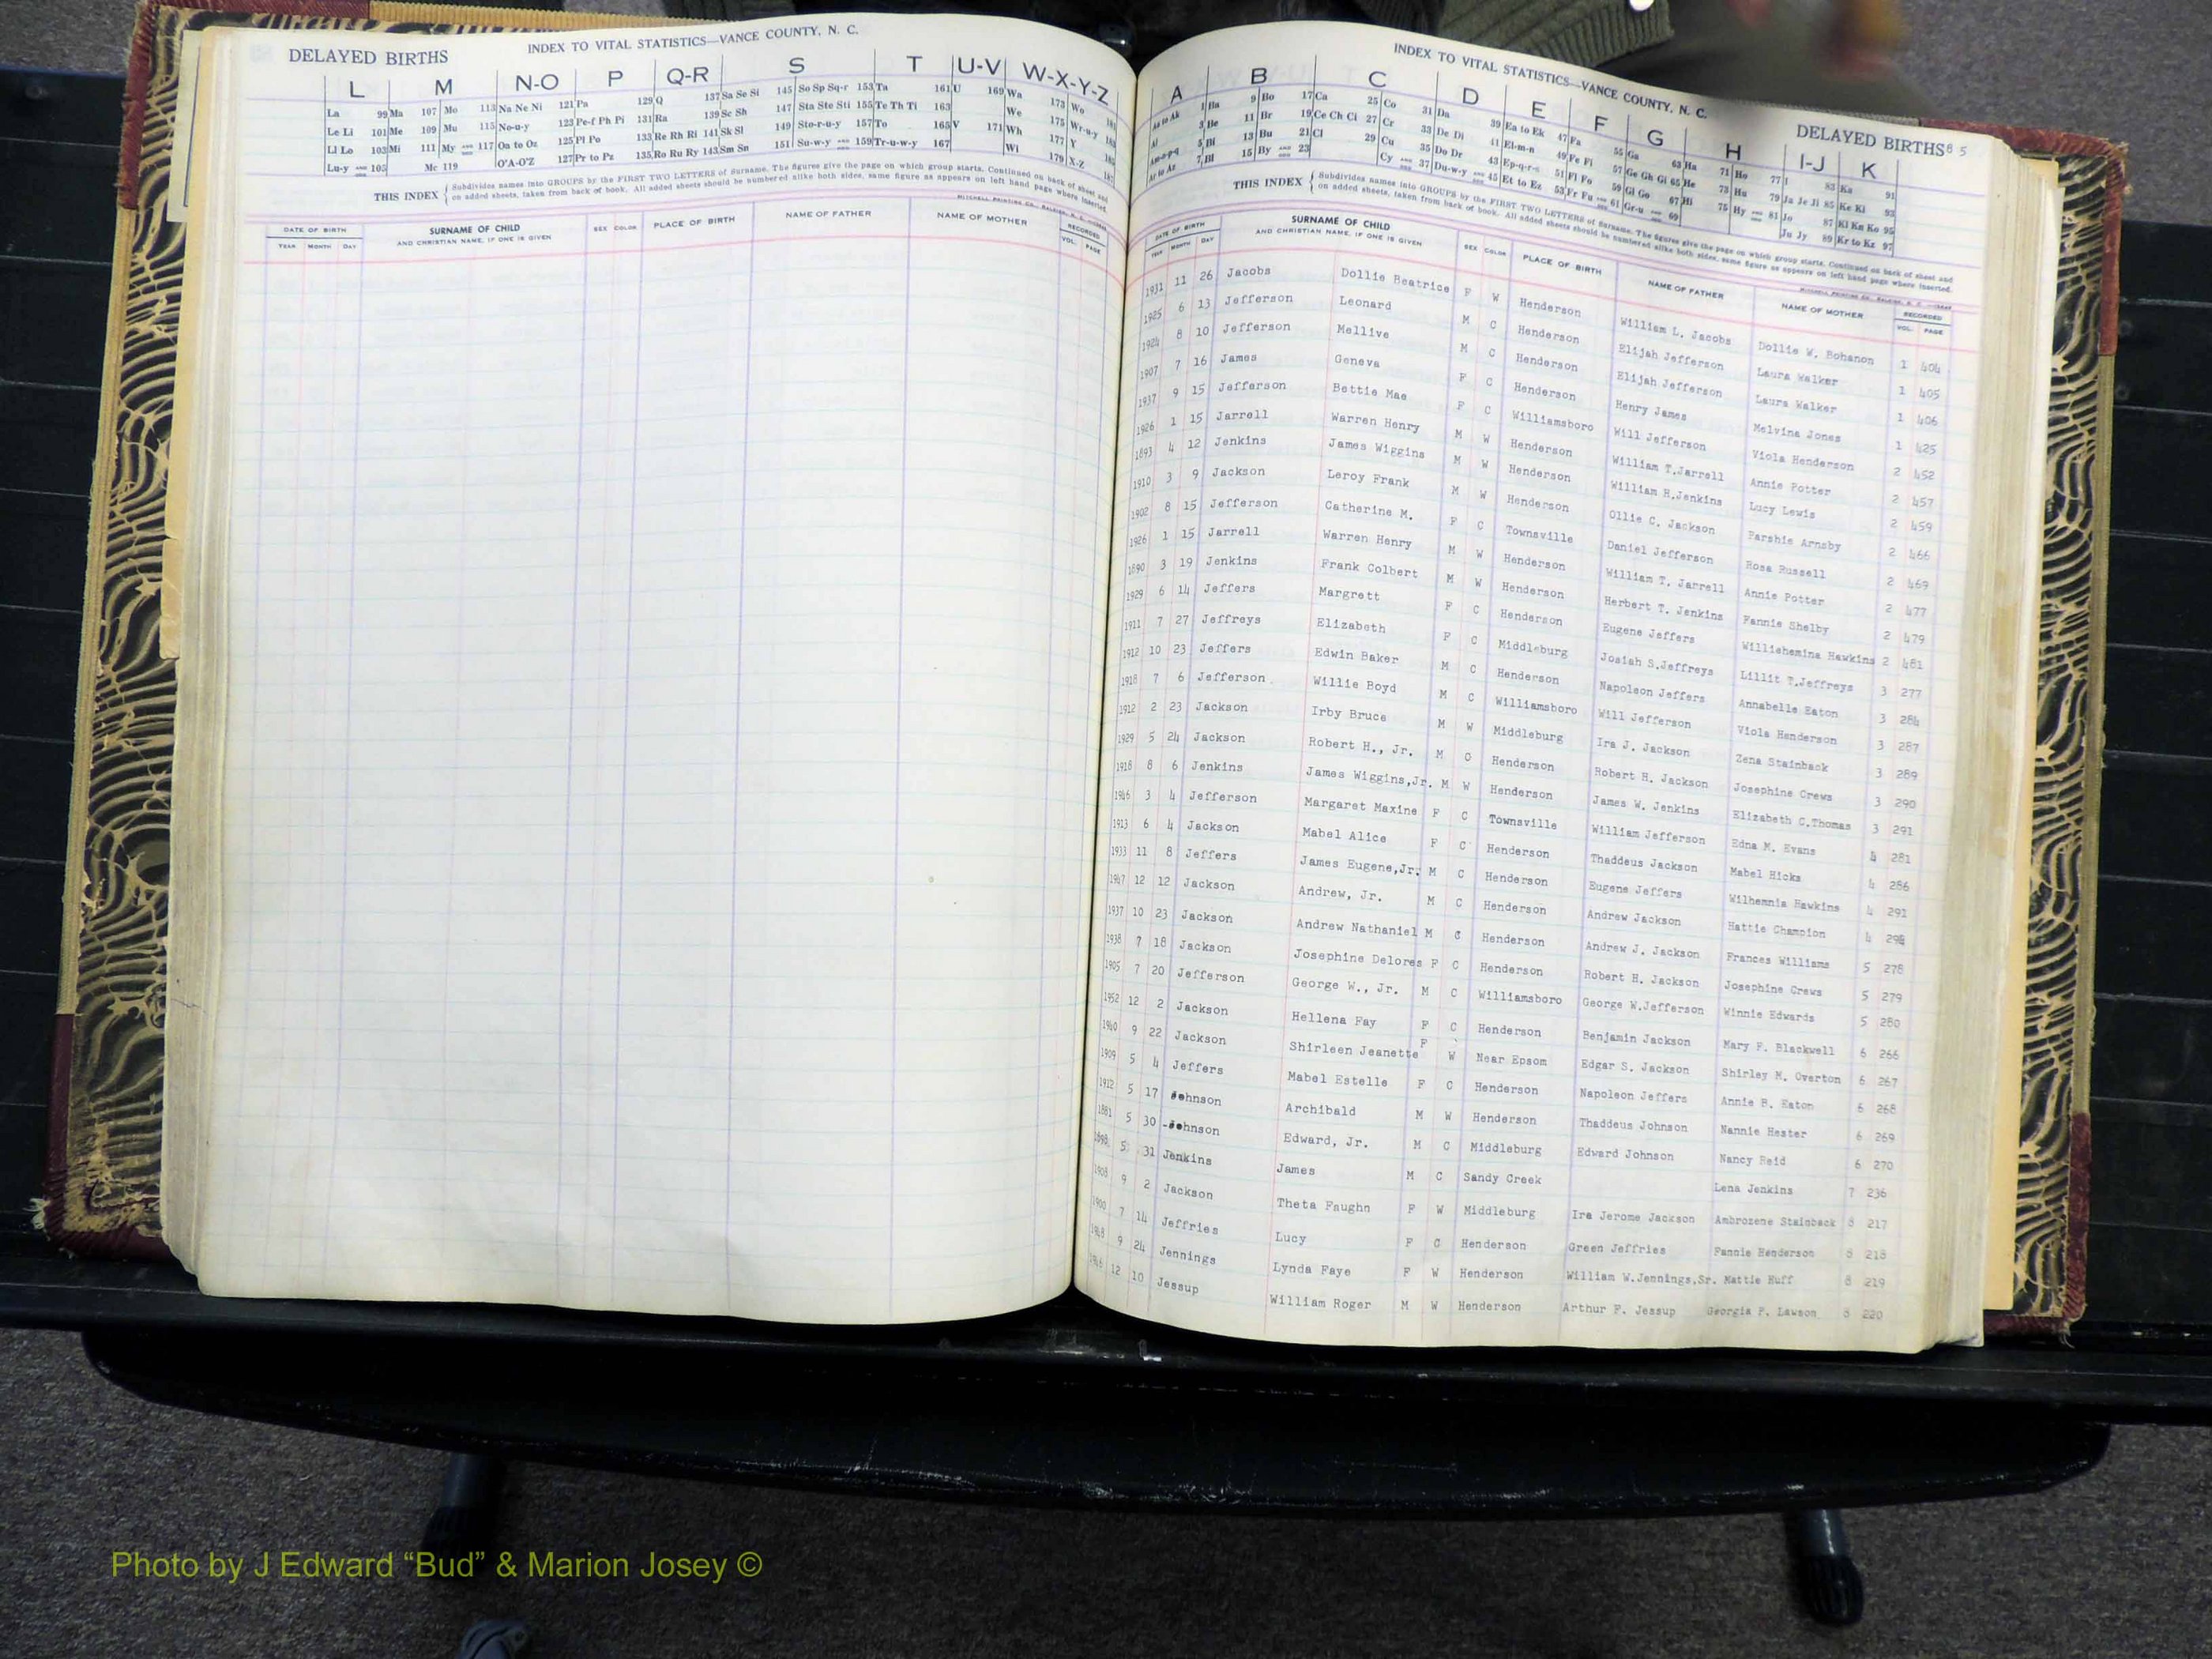 DELAYED BIRTHS
INDEX TO VITAL STATISTICS—VANCE COUNTY, N. C.
L M N-O P Q-R S T U-V W-X-Y-Z
La 99 Ma 107 Mo 113 Na Ne Ni 121 Pa 129 Q 137 Sa Se Si 145 So Sp Sq-r 153 Ta 161 U 169 Wa 173 Wo
Le Li 101 Me 109 Mu 115 No-u-y 123 Pe-f Ph Pi 131 Ra 139 Sc Sh 147 Sta Ste Sti 155 Te Th Ti 163 We 175 Wr-u-y
Ll Lo 103 Mi 111 My AND 117 Oa to Oz 125 Pl Po 133 Re Rh Ri 141 Sk Sl 149 Sto-r-u-y 157 To 165 V 171 Wh 177 Y
Lu-y AND 105 Mc 119 O'A-O'Z 127 Pr to Pz 135 Ro Ru Ry 143 Sm Sn 151 Su-w-y AND 159 Tr-u-w-y 167 Wi 179 X-Z
THIS INDEX { Subdivides names into GROUPS by the FIRST TWO LETTERS of Surname. The figures give the page on which group starts. Continued on back of sheet and
on added sheets, taken from back of book. All added sheets should be numbered alike both sides, same figure as appears on left hand page where inserted.
DATE OF BIRTH SURNAME OF CHILD SEX COLOR PLACE OF BIRTH NAME OF FATHER NAME OF MOTHER RECORDED
YEAR MONTH DAY AND CHRISTIAN NAME, IF ONE IS GIVEN VOL. PAGE
INDEX TO VITAL STATISTICS—VANCE COUNTY, N. C.
DELAYED BIRTHS 85
A B C D E F G H I-J K
Aa to Ak 1 Ba 9 Bo 17 Ca 25 Co 31 Da 39 Ea to Ek 47 Fa 55 Ga 63 Ha 71 Ho 77 I 83 Ka 91
Al 3 Be 11 Br 19 Ce Ch Ci 27 Cr 33 De Di 41 El-m-n 49 Fe Fi 57 Ge Gh Gi 65 He 73 Hu 79 Ja Je Ji 85 Ke Ki 93
Am-n-p-q 5 Bi 13 Bu 21 Cl 29 Cu 35 Do Dr 43 Ep-q-r-s 51 Fl Fo 59 Gl Go 67 Hi 75 Hy AND 81 Jo 87 Kl Kn Ko 95
Ar to Az 7 Bl 15 By AND 23 Cy AND 37 Du-w-y AND 45 Et to Ez 53 Fr Fu AND 61 Gr-u AND 69 Ju Jy 89 Kr to Kz 97
THIS INDEX { Subdivides names into GROUPS by the FIRST TWO LETTERS of Surname. The figures give the page on which group starts. Continued on back of sheet and
on added sheets, taken from back of book. All added sheets should be numbered alike both sides, same figure as appears on left hand page where inserted.
DATE OF BIRTH SURNAME OF CHILD SEX COLOR PLACE OF BIRTH NAME OF FATHER NAME OF MOTHER RECORDED
YEAR MONTH DAY AND CHRISTIAN NAME, IF ONE IS GIVEN VOL. PAGE
1931 11 26 Jacobs Dollie Beatrice F W Henderson William L. Jacobs Dollie W. Bohanon 1 404
1925 6 13 Jefferson Leonard M C Henderson Elijah Jefferson Laura Walker 1 405
1924 8 10 Jefferson Mellive M C Henderson Elijah Jefferson Laura Walker 1 406
1907 7 16 James Geneva F C Henderson Henry James Melvina Jones 1 425
1937 9 15 Jefferson Bettie Mae F C Williamsboro Will Jefferson Viola Henderson 2 452
1926 1 15 Jarrell Warren Henry M W Henderson William T.Jarrell Annie Potter 2 457
1893 4 12 Jenkins James Wiggins M W Henderson William H.Jenkins Lucy Lewis 2 459
1910 3 9 Jackson Leroy Frank M W Henderson Ollie C. Jackson Parshie Arnsby 2 466
1902 8 15 Jefferson Catherine M. F C Townsville Daniel Jefferson Rosa Russell 2 469
1926 1 15 Jarrell Warren Henry M W Henderson William T. Jarrell Annie Potter 2 477
1890 3 19 Jenkins Frank Colbert M W Henderson Herbert T. Jenkins Fannie Shelby 2 479
1929 6 14 Jeffers Margrett F C Henderson Eugene Jeffers Williehemina Hawkins 2 481
1911 7 27 Jeffreys Elizabeth F C Middleburg Josiah S.Jeffreys Lillit T.Jeffreys 3 277
1912 10 23 Jeffers Edwin Baker M C Henderson Napoleon Jeffers Annabelle Eaton 3 284
1918 7 6 Jefferson Willie Boyd M C Williamsboro Will Jefferson Viola Henderson 3 287
1912 2 23 Jackson Irby Bruce M W Middleburg Ira J. Jackson Zena Stainback 3 289
1929 5 24 Jackson Robert H., Jr. M C Henderson Robert H. Jackson Josephine Crews 3 290
1918 8 6 Jenkins James Wiggins,Jr. M W Henderson James W. Jenkins Elizabeth C.Thomas 3 291
1946 3 4 Jefferson Margaret Maxine F C Townsville William Jefferson Edna M. Evans 4 281
1913 6 4 Jackson Mabel Alice F C Henderson Thaddeus Jackson Mabel Hicks 4 286
1933 11 8 Jeffers James Eugene,Jr. M C Henderson Eugene Jeffers Wilhemnia Hawkins 4 291
1947 12 12 Jackson Andrew, Jr. M C Henderson Andrew Jackson Hattie Champion 4
1937 10 23 Jackson Andrew Nathaniel M C Henderson Andrew J. Jackson Frances Williams 5 278
1938 7 18 Jackson Josephine Delores F C Henderson Robert H. Jackson Josephine Crews 5 279
1905 7 20 Jefferson George W., Jr. M C Williamsboro George W.Jefferson Winnie Edwards 5 280
1952 12 2 Jackson Hellena Fay F C Henderson Benjamin Jackson Mary F. Blackwell 6 266
1940 9 22 Jackson Shirleen Jeanette F W Near Epsom Edgar S. Jackson Shirley M. Overton 6 267
1909 5 4 Jeffers Mabel Estelle F C Henderson Napoleon Jeffers Annie B. Eaton 6 268
1912 5 17 Johnson Archibald M W Henderson Thaddeus Johnson Nannie Hester 6 269
1881 5 30 Johnson Edward, Jr. M C Middleburg Edward Johnson Nancy Reid 6 270
1898 5 31 Jenkins James M C Sandy Creek Lena Jenkins 7 236
1908 9 2 Jackson Theta Faughn F W Middleburg Ira Jerome Jackson Ambrozene Stainback 8 217
1900 7 14 Jeffries Lucy F C Henderson Green Jeffries Fannie Henderson 8 218
1948 9 24 Jennings Lynda Faye F W Henderson William W.Jennings,Sr. Mattie Huff 8 219
12 10 Jessup William Roger M W Henderson Arthur F. Jessup Georgia P. Lawson 8 220
Photo by J Edward “Bud” & Marion Josey ©